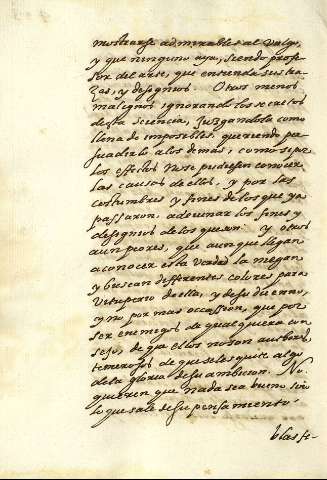 mostrarse admirables al vulgo,
y que ninguno aya, siendo profe-
sor del arte, que entienda sus tra-
zas, y designios. Otros menos
malignos ignorando los secretos
desta sciencia, Juzgandola como
llena de imposibles, queriendo per-
suadirlo a los demas, como si por
los effectos no se pudiesen conocer
las causas de ellos, y por las
costumbres y fines de los que ya
passaron, adeuinar los fines y
designios de los que son. y otros
aun peores, que aunque llegan
a conocer esta verdad la niegan
y buscan differentes colores para
vituperio della, y de su dicerno,
y no por mas occassion, que por
ser enemigos de qualquiera con
sejo, de que ellos no son auctores,
temerosos de que se les quite algo
de la gloria de su ambicion. No
quieren que nada sea bueno sino
lo que sale de su pensamiento.
blasfe-